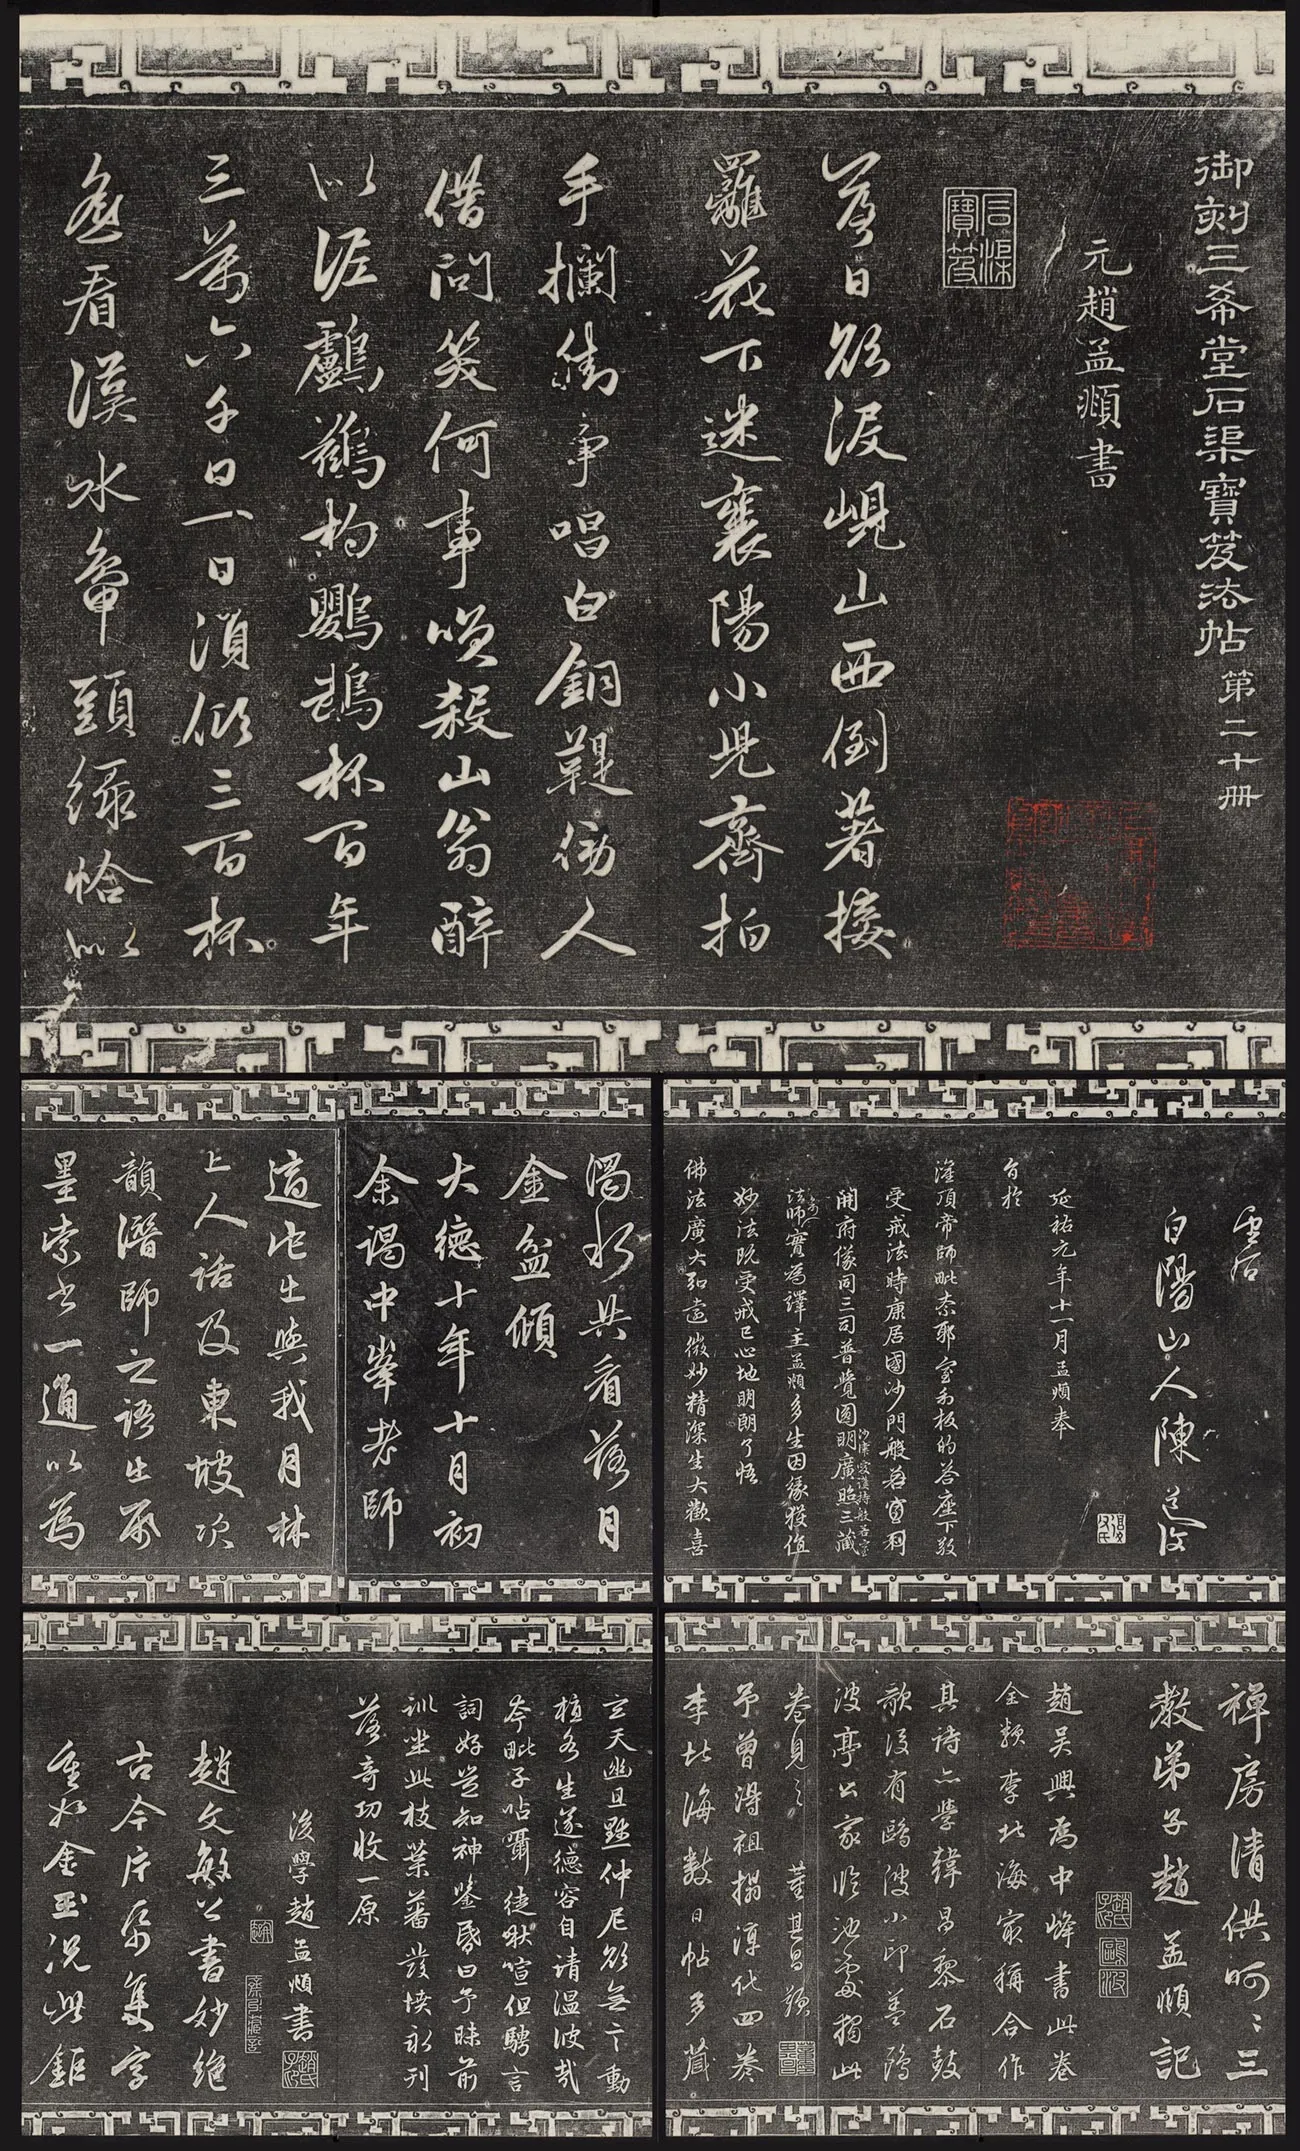 御刻三希堂石渠寶笈法帖 第二十冊
元趙孟頫書
石渠寶笈
落日欲沒峴山西倒著接
䍦花下迷襄陽小兒齊拍
手攔街爭唱白銅鞮傍人
借問笑何事笑殺山翁醉
似泥鸕鶿杓鸚鵡杯百年
三萬六千日一日須傾三百杯
遙看漢水鴨頭綠恰似
白陽山人陳道復
延祐元年十一月孟頫奉
灌頂帝師毗奈耶室利板的答座下敬
受戒法時康居國沙門般若室利
開府儀同三司普覺圓明廣照三藏
法師實為譯主孟頫多生因緣獲值
妙法既受戒已心地明朗了悟
佛法廣大弘遠微妙精深生大歡喜
濁水共看落月
金盆傾
大德十年十月初
余謁中峯老師
適此生與我月林
上人話及東坡次
韻潛師之語出
墨索書一通以為
禪房清供呵呵三
教弟子趙孟頫記
趙吳興為中峰書此卷
全類李北海最稱合作
其詩亦學韓昌黎石鼓
歌後有鷗波小印蓋鷗
波亭公家臨池處獨此
卷見之 董其昌題
予曾得祖搨淳化四卷
李北海數日帖多藏
玄天幽且默仲尼欲無言動
植各生遂德容自清溫彼哉
夸毗子呫囁徒啾喧但騁言
詞好豈知神鑒昏曰予昧前
訓坐此枝葉蕃發憤永刊
落奇功收一原
後學趙孟頫書
趙文敏公書妙絕
古今片紙隻字
重如金玉況此鉅